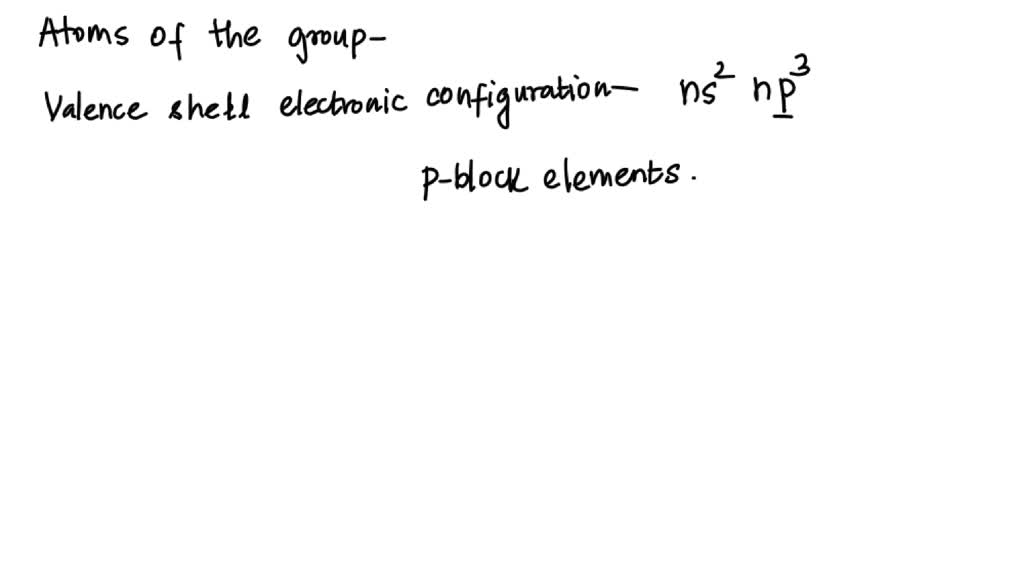 Atoms of the group-
Valence shell electronic configuration— ns² np³
p-block elements.